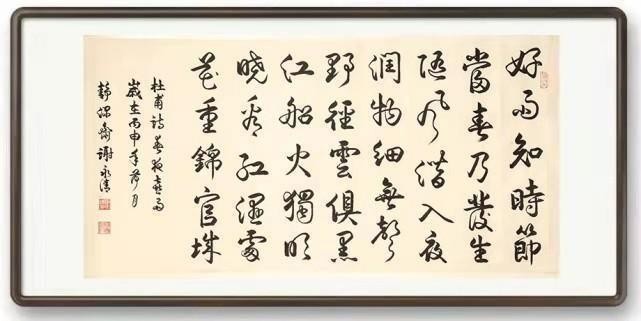 好雨知時節
當春乃發生
随風潜入夜
潤物細無聲
野徑雲俱黑
江船火獨明
曉看紅濕處
花重錦官城
杜甫詩春夜喜雨
歲在丙申年月
謝永清